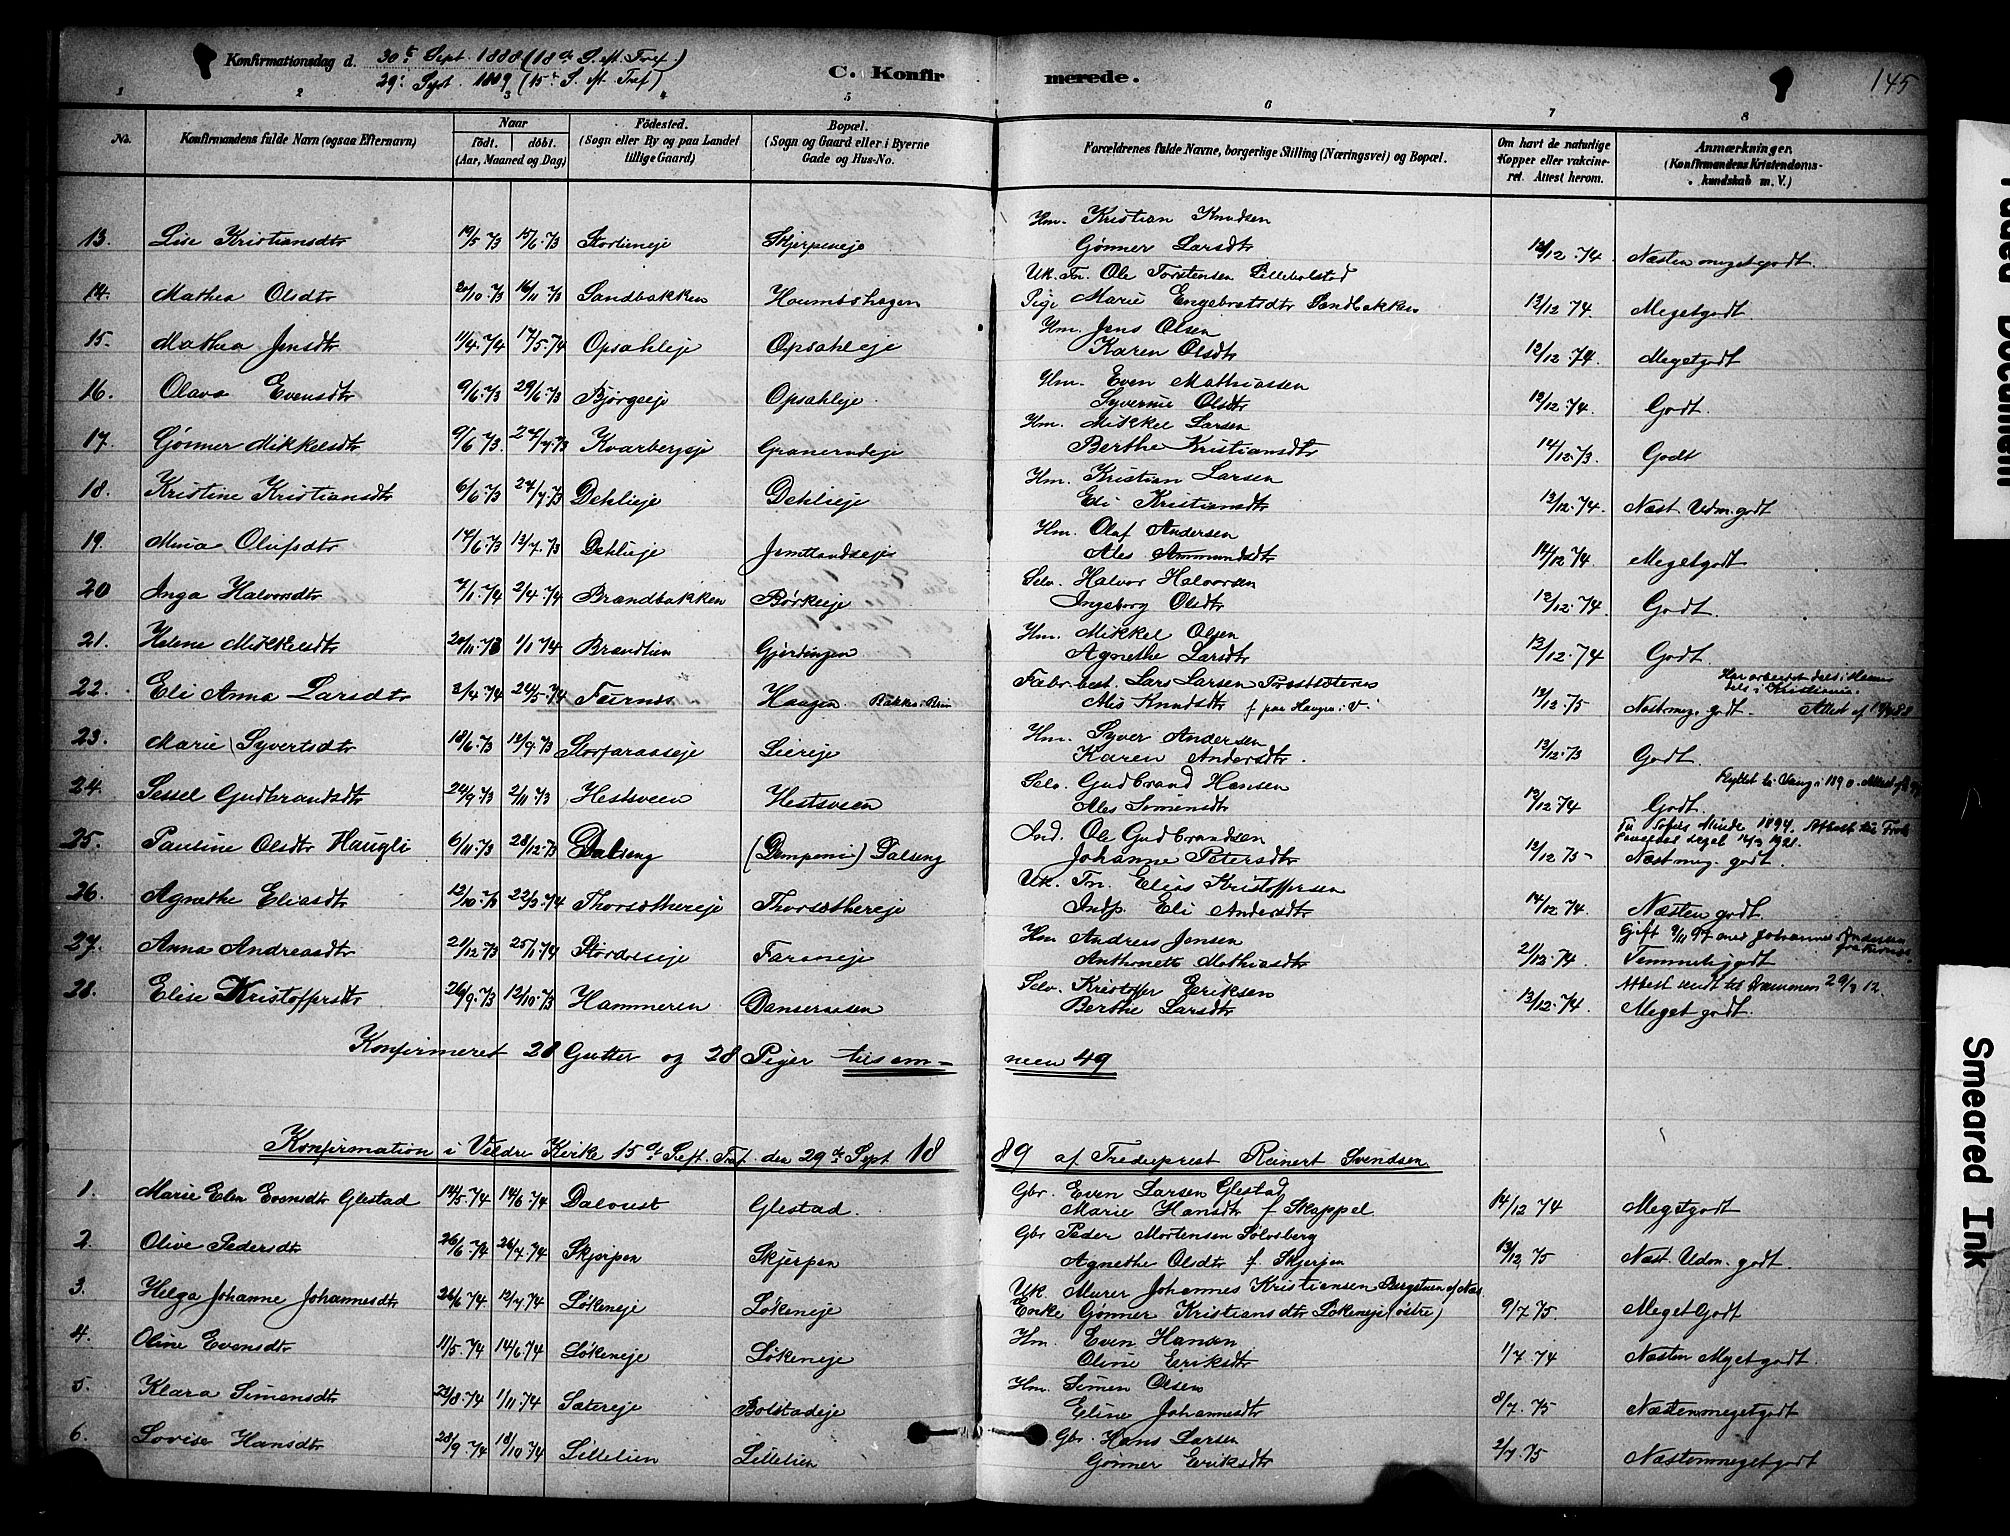 Konfirmationsdag d. 30te Sept. 1888 (18de S. e. Tref.)
29de Sept. 1889 (15de S. e. Tref.)
C. Konfirmerede.
145
1 2 3 4 5 6 7 8
No. Konfirmandens fulde Navn (ogsaa Efternavn) Naar født. døbt. (Aar, Maaned og Dag) Fødested. (Sogn eller By og paa Landet tillige Gaard) Bopæl. (Sogn og Gaard eller i Byerne Gade og Hus-No. Forældrenes fulde Navne, borgerlige Stilling (Næringsvei) og Bopæl. Om havt de naturlige Kopper eller vakcineret. Attest herom. Anmærkninger. (Konfirmandens Kristendomskundskab m. V.)
13. Lise Kristiansdtr 19/5.73 15/6.73 Storlieneje Skjerpeneje Hm. Kristian Knudsen
Gønner Larsdtr 12/12.74 Næsten meget godt.
14. Mathea Olsdtr 20/10.73 16/11.73 Sandbakken Uk. Tn. Ole Torstensen Lillebolstad
Pige Marie Engebretsdtr Sandbakken 13/12 74 Megetgodt.
15. Mathea Jensdtr 11/4.74 17/5.74 Opsahleje Opsahleje Hm. Jens Olsen
Karen Olsdtr 12/12.74. Megetgodt
16. Olava Evensdtr 9/6.73 29/6.73 Bjørgeeje Opsahleje Hm. Even Mathiassen
Syverine Olsdtr 12/12.74. Godt.
17. Gønner Mikkelsdtr 9/6.73. 27/7.73 Kvarbergsje Granerudeje Hm. Mikkel Larsen
Berthe Kristiansdtr 14/12.73. Godt
18. Kristine Kristiansdtr 6/6.73 27/7.73 Dehlieje Dehlieje Hm. Kristian Larsen
Eli Kristiansdtr 12/12.74. Næst. Udm. godt
19. Mina Olufsdtr 14/6.73 13/7.73 Dehlieje Jemtlandseje Hm. Oluf Andersen
Ales Ammundsdtr 14/12 74 Megetgodt.
20 Inga Halvorsdtr 7/1.74 2/4.74 Brandbakken Børkeeje Selv. Halvor Halvorsen
Ingeborg Olsdtr 12/12.74 Godt.
21. Helene Mikkelsdtr 20/11.73 1/1 74 Brandlien Gjørdingen Hm. Mikkel Olsen
Agnethe Larsdtr 12/12.74 Godt.
22. Eli Anna Larsdtr 2/4 74 24/5.74 Furnes Haagen Fabr. best. Lars Larsen
Ales Knudsdtr 12/12.75 Næst. meg. godt.
23. Marie Syvertsdtr 18/6.73 12/9.73 Storfaraaseje Liereje Hm. Syver Andersen
Karen Andersdtr. 12/12.73 Godt.
24. Sessel Gudbrandsdtr 24/9 73 2/11 73 Hestsveen Hestsveen Selv. Gudbrand Hansen
Ales Simensdtr 12/12 74 Godt. Flyttet til Vang i 1890.
25. Pauline Olsdtr Haugli 6/11.73 28/12.73 Dalseng Dalseng Ind. Ole Gudbrandsen
Johanne Petersdtr 12/12 75 Næst meg. godt.
26. Agnethe Eliasdtr 12/10.73 22/3.74 Thorsøthereje Thorsøthereje Uk. Tn. Elias Kristoffersen
Indp. Eli Andersdtr 14/12 74. Næsten godt.
27. Anna Andreasdtr 21/12.73 25/1.74 Størdeseje Faraneje Hm Andreas Jensen
Anthonette Mathiasdtr 21/12.74 Gift 9/11 97 med Johannes Andersen
Temmeligodt
28. Elise Kristoffersdtr 26/9.73 12/10.73 Hammeren Danseraasen Selv. Kristoffer Eriksen
Berthe Larsdtr 13/12.74 Attest sendt til Drammen 29/3 12.
Meget godt.
Konfirmeret 28 Gutter og 28 Piger tilsammen 49
Konfirmation i Veldre Kirke 15de S. eft. Tref. den 29de Sept. 1889 af Trediepræst Reinert Svendsen
1. Marie Elin Evensdtr Glestad 14/5.74 14/6.74 Dalvest Glestad. Gbr. Even Larsen Glestad
Marie Hansdtr f. Skappel 14/12 74 Megetgodt
2. Olive Pedersdtr 26/6 74 26/7.74 Skjerpen Skjerpen Gbr Peder Mortensen Solvsberg
Agnethe Olsdtr f. Skjerpen 13/12 75 Næst. Udm. godt
3. Helga Johanne Johannesdtr 26/6 74 12/7 74 Løkeneje Løkeneje Uk. Murer Johannes Kristiansen Bergstuen af Næs
Enke Gønner Kristiansdtr Løkeneje (østre) 9/7 75. Meget Godt
4. Oline Evensdtr 11/5.74 14/6 74 Løkeneje Løkeneje Hm. Even Hansen
Oline Eriksdtr 1/7 74 Næsten Megetgodt.
5. Klara Simensdtr 23/8.74 1/11.74 Sætereje Bolstadeje Hm. Simen Olsen
Eline Johannesdtr 8/7.75 Næstenmegetgodt
6. Lovise Hansdtr 28/9.74 18/10 74 Lillelien Lillelien Gbr. Hans Larsen
Gønner Eriksdtr 2/7.75 Næstenmegetgodt
Faded Document
Smeared Ink